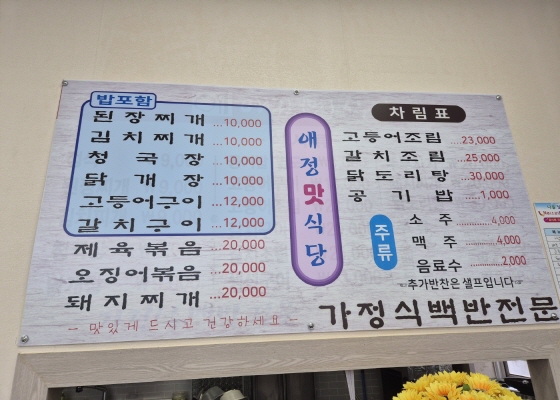 밥포함
된장찌개 ...10,000
김치찌개 ...10,000
청국장 ...10,000
닭개장 ...10,000
고등어구이 ...12,000
갈치구이 ...12,000
제육볶음 ...20,000
오징어볶음 ...20,000
돼지찌개 ...20,000
- 맛있게 드시고 건강하세요 -
애정맛식당
차림표
고등어조림 ....23,000
갈치조림 ...25,000
닭도리탕 ...30,000
공기밥 .....1,000
주류
소주 ............4,000
맥주 ............4,000
음료수 ............2,000
-추가반찬은 셀프입니다-
가정식백반전문